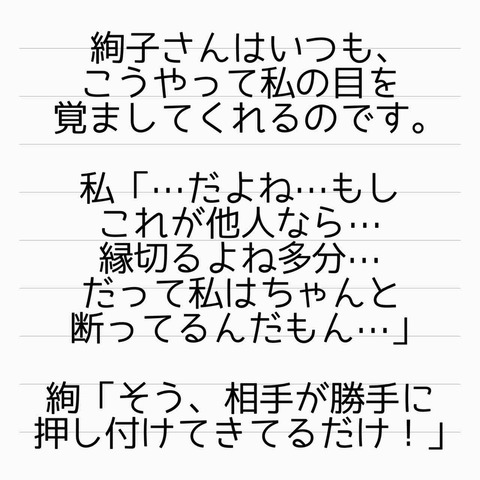 絢子さんはいつも、
こうやって私の目を
覚ましてくれるのです。
私「…だよね…もし
これが他人なら…
縁切るよね多分…
だって私はちゃんと
断ってるんだもん…」
絢「そう、相手が勝手に
押し付けてきてるだけ！」